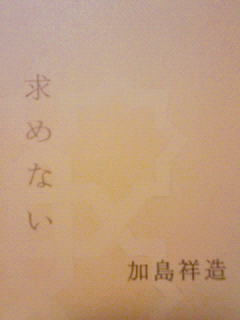 求めない
加島祥造